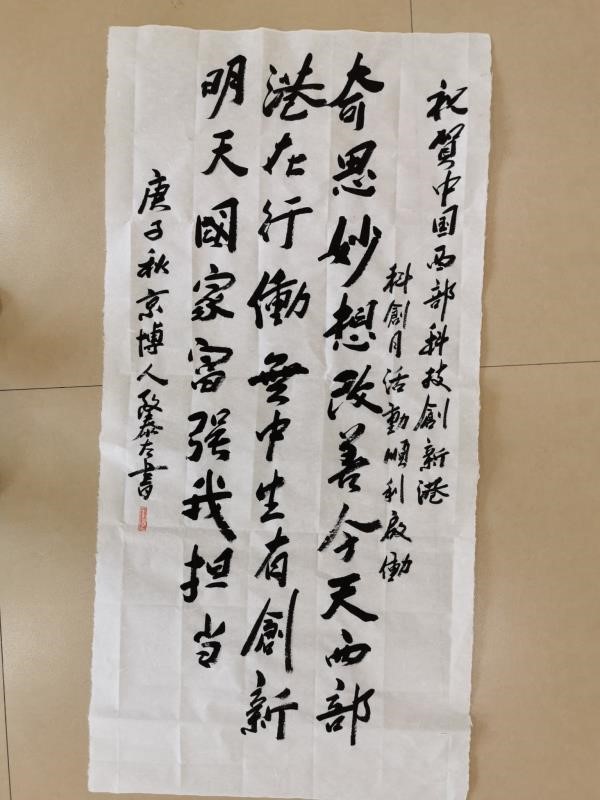 祝贺中国西部科技創新港
科創月活動順利啟働
奇思妙想改善今天西部
港在行働無中生有創新
明天國家富强我担当
庚子秋京博人
书